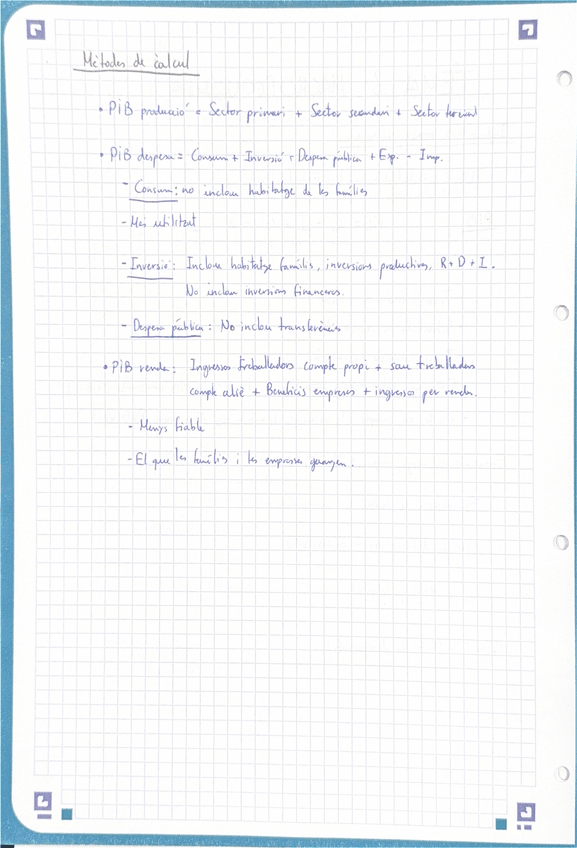 Mètodes de càlcul
• PiB producció = Sector primari + Sector secundari + Sector terciari
• PiB despesa = Consum + Inversió + Despesa pública + Exp. - Imp.
- Consum: no inclou habitatge de les famílies
- Més utilitzat
- Inversió: Inclou habitatge famílis, inversions productives, R + D + I.
No inclou inversions financeres.
- Despesa pública: No inclou transferències
• PiB renda: Ingressos treballadors compte propi + sou treballadors
compte aliè + Beneficis empreses + ingressos per renda.
- Menys fiable
- El que les famílis i les empresses guanyen.